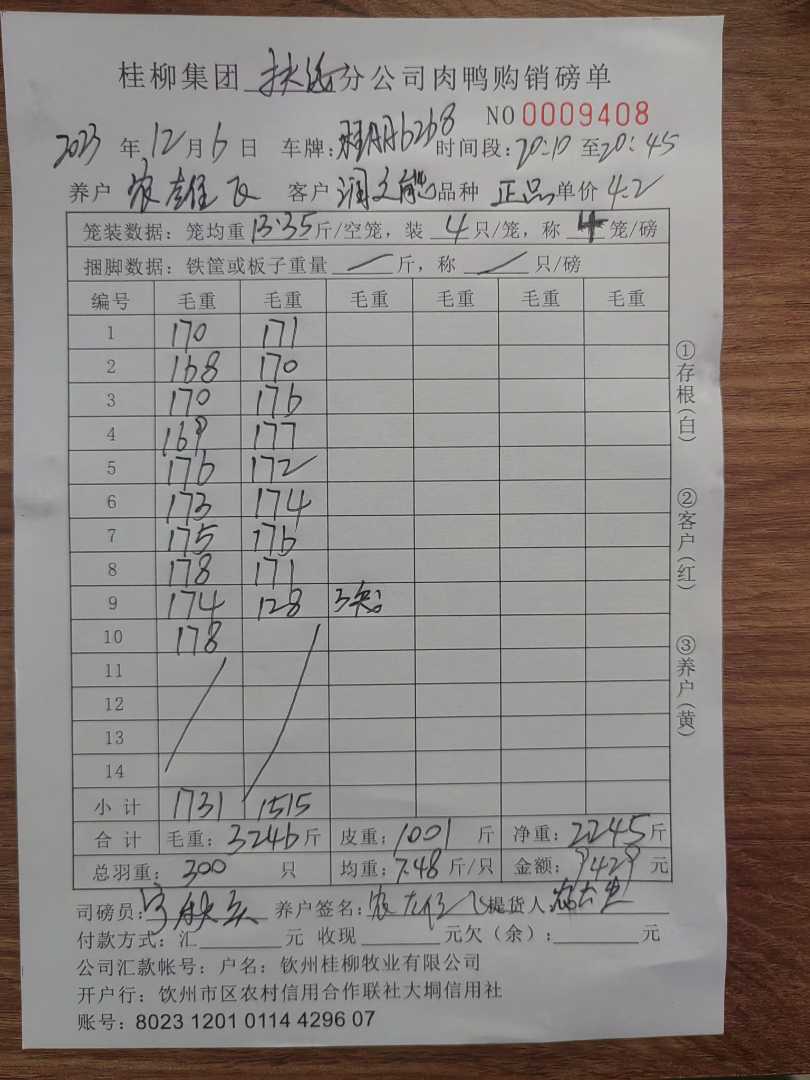 桂柳集团 扶绥 分公司肉鸭购销磅单
NO 0009408
2023 年 12 月 6 日 车牌: 6268 时间段: 20:10 至 20:45
养户 农雄飞 客户 文能 品种 正品 单价 4.2
笼装数据: 笼均重 13.35 斤/空笼, 装 4 只/笼, 称 4 笼/磅
捆脚数据: 铁筐或板子重量 / 斤, 称 / 只/磅
编号 毛重 毛重 毛重 毛重 毛重 毛重
1 170 171
2 168 170
3 170 176
4 169 177
5 176 172
6 173 174
7 175 176
8 178 171
9 174 128 3只
10 178
11
12
13
14
小计 1731 1515
合计 毛重: 3246 斤 皮重: 1001 斤 净重: 2245 斤
总羽重: 300 只 均重: 7.48 斤/只 金额: 9429 元
司磅员: 养户签名: 农 飞 提货人:
付款方式: 汇 元 收现 元欠(余): 元
公司汇款帐号: 户名: 钦州桂柳牧业有限公司
开户行: 钦州市区农村信用合作联社大垌信用社
账号: 8023 1201 0114 4296 07
①存根(白)
②客户(红)
③养户(黄)